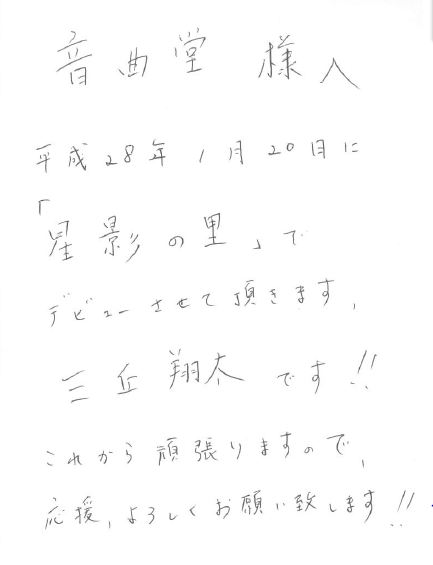 音曲堂 様へ
平成28年1月20日に
「
星影の里」で
デビューさせて頂きます、
三丘翔太です!!
これから頑張りますので、
応援、よろしくお願い致します!!